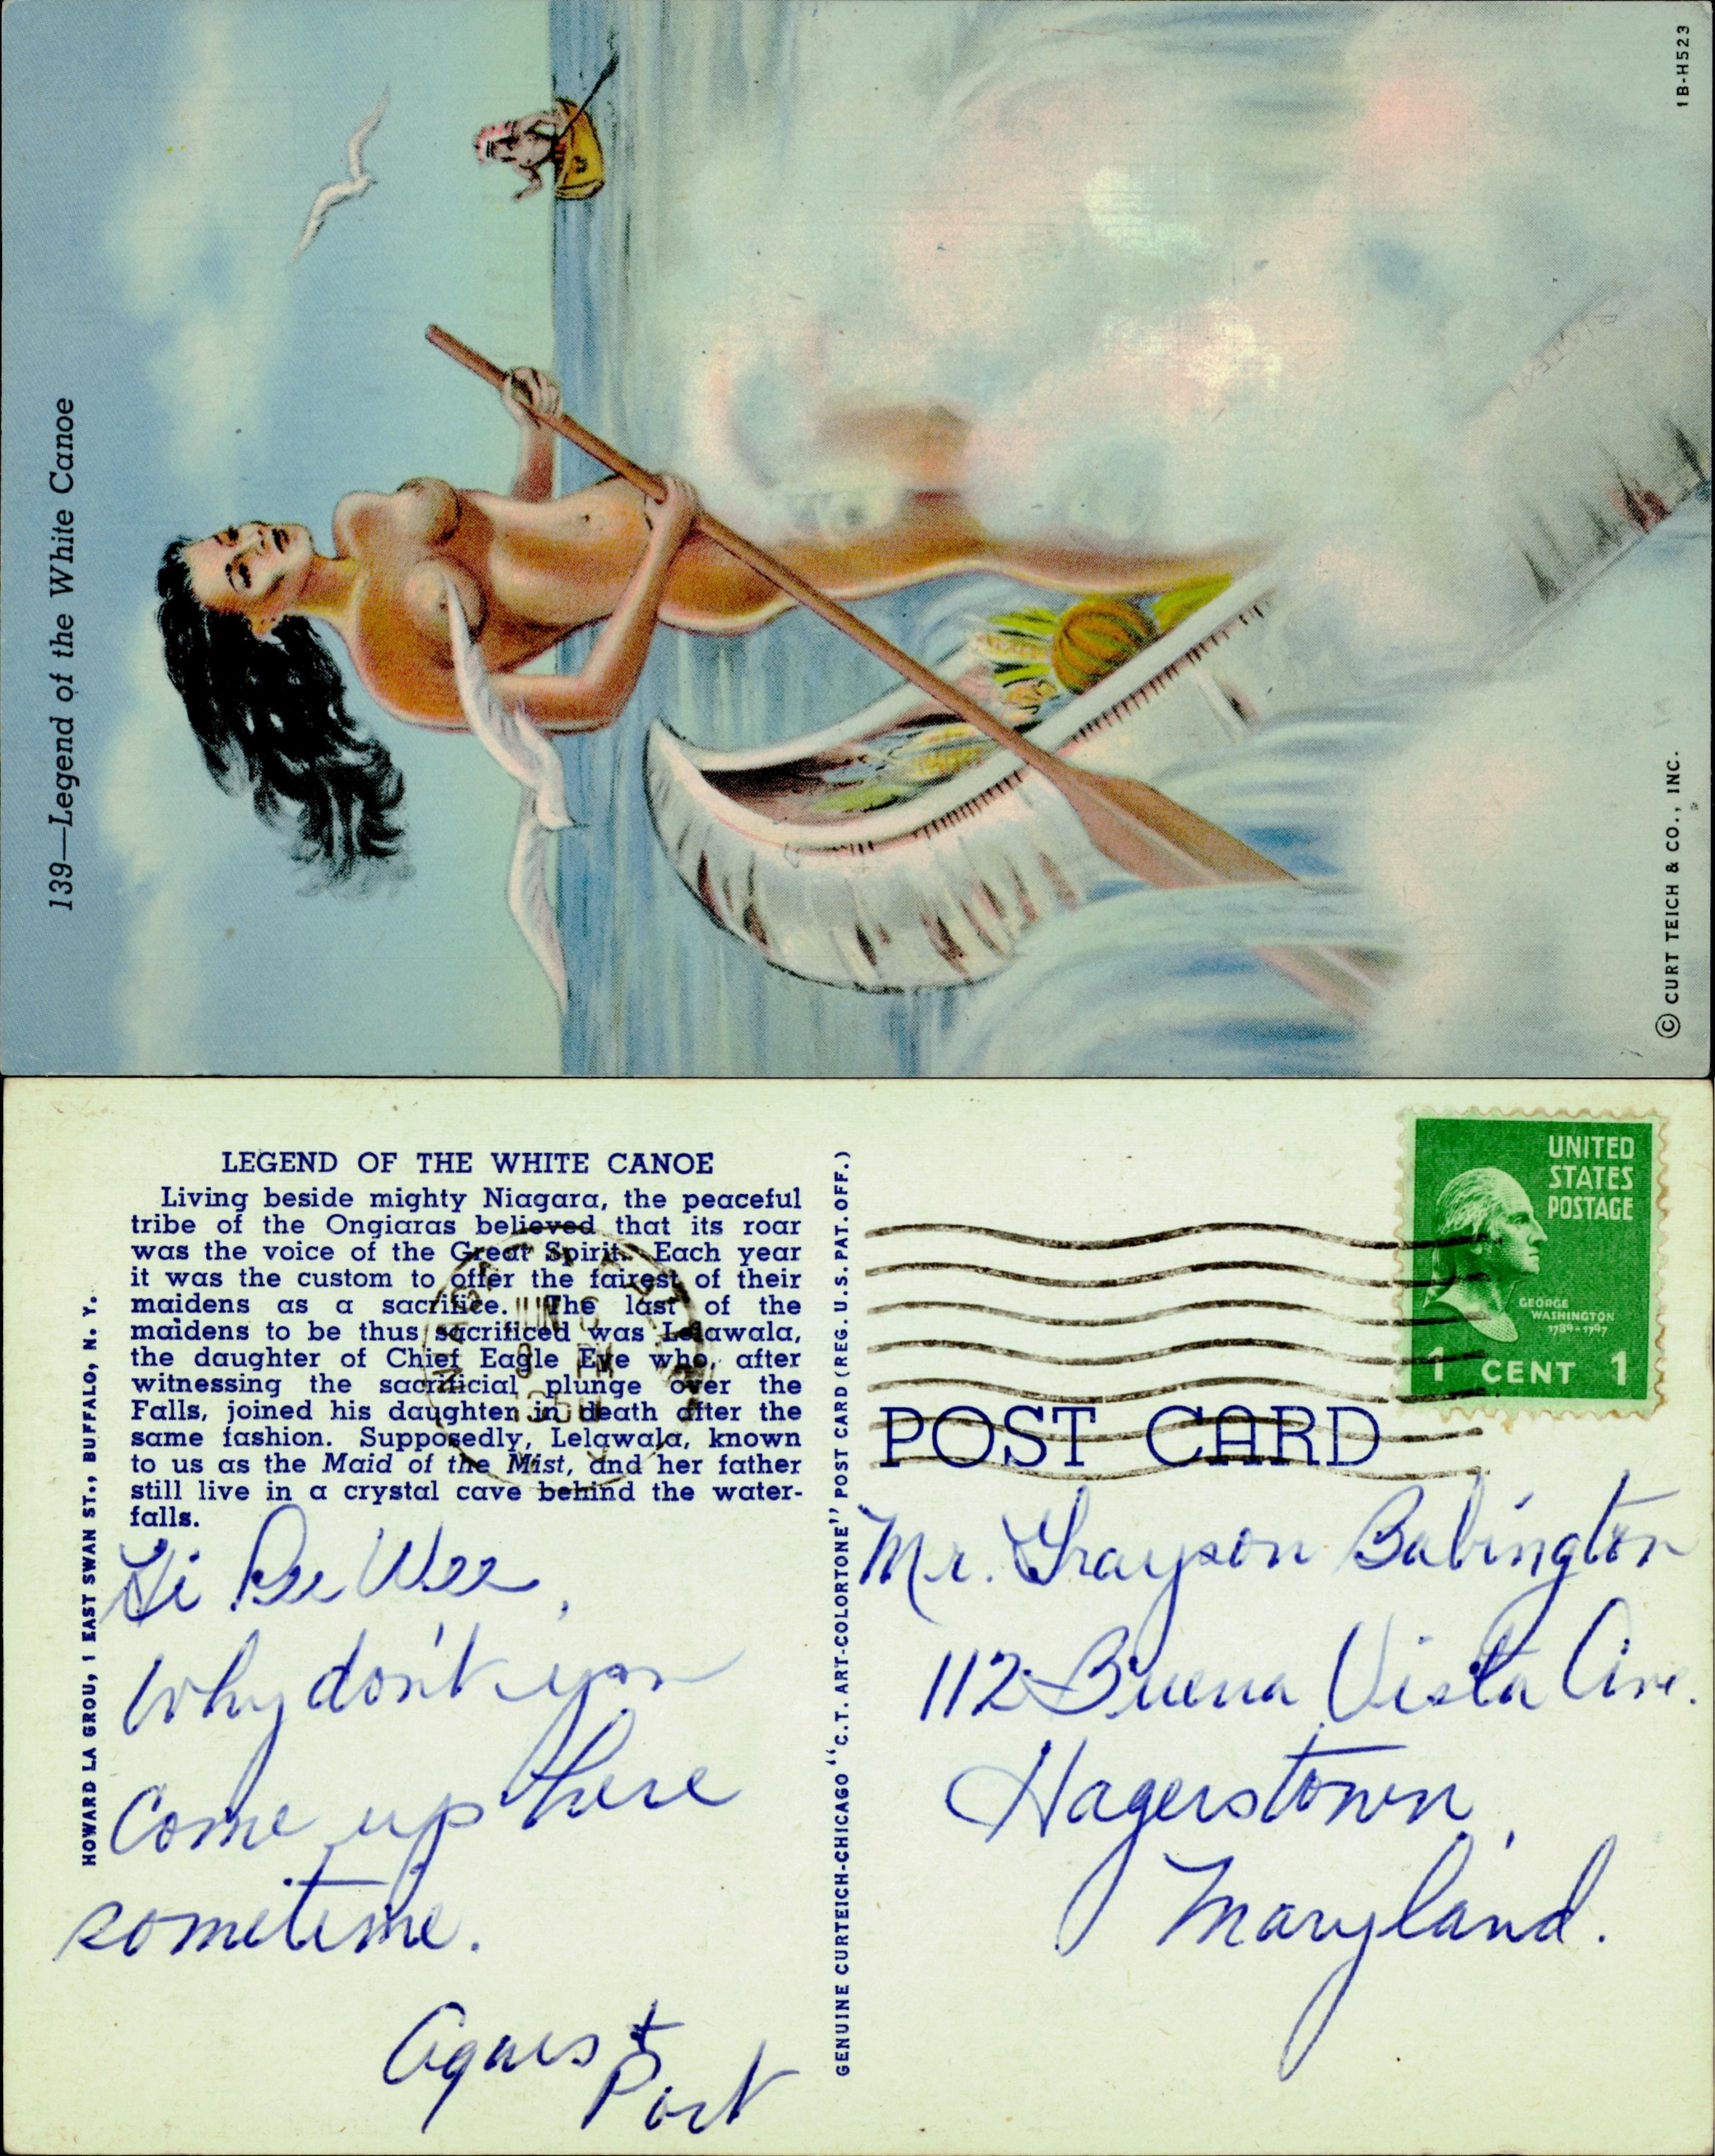 139—Legend of the White Canoe
1B-H523
© CURT TEICH & CO., INC.
LEGEND OF THE WHITE CANOE
Living beside mighty Niagara, the peaceful
tribe of the Ongiaras believed that its roar
was the voice of the Great Spirit. Each year
it was the custom to offer the fairest of their
maidens as a sacrifice. The last of the
maidens to be thus sacrificed was Lelawala,
the daughter of Chief Eagle Eye who, after
witnessing the sacrificial plunge over the
Falls, joined his daughter in death after the
same fashion. Supposedly, Lelawala, known
to us as the Maid of the Mist, and her father
still live in a crystal cave behind the water-
falls.
HOWARD LA GROU, 1 EAST SWAN ST., BUFFALO, N. Y.
Hi Pee Wee,
Why don't you
Come up here
sometime.
Agnes &
Port
GENUINE CURTEICH-CHICAGO "C.T. ART-COLORTONE" POST CARD (REG. U.S. PAT. OFF.)
JUN 6
PM
UNITED
STATES
POSTAGE
GEORGE
WASHINGTON
1789-1797
1 CENT 1
POST CARD
Mr. Grayson Babington
112 Buena Vista Ave.
Hagerstown,
Maryland.